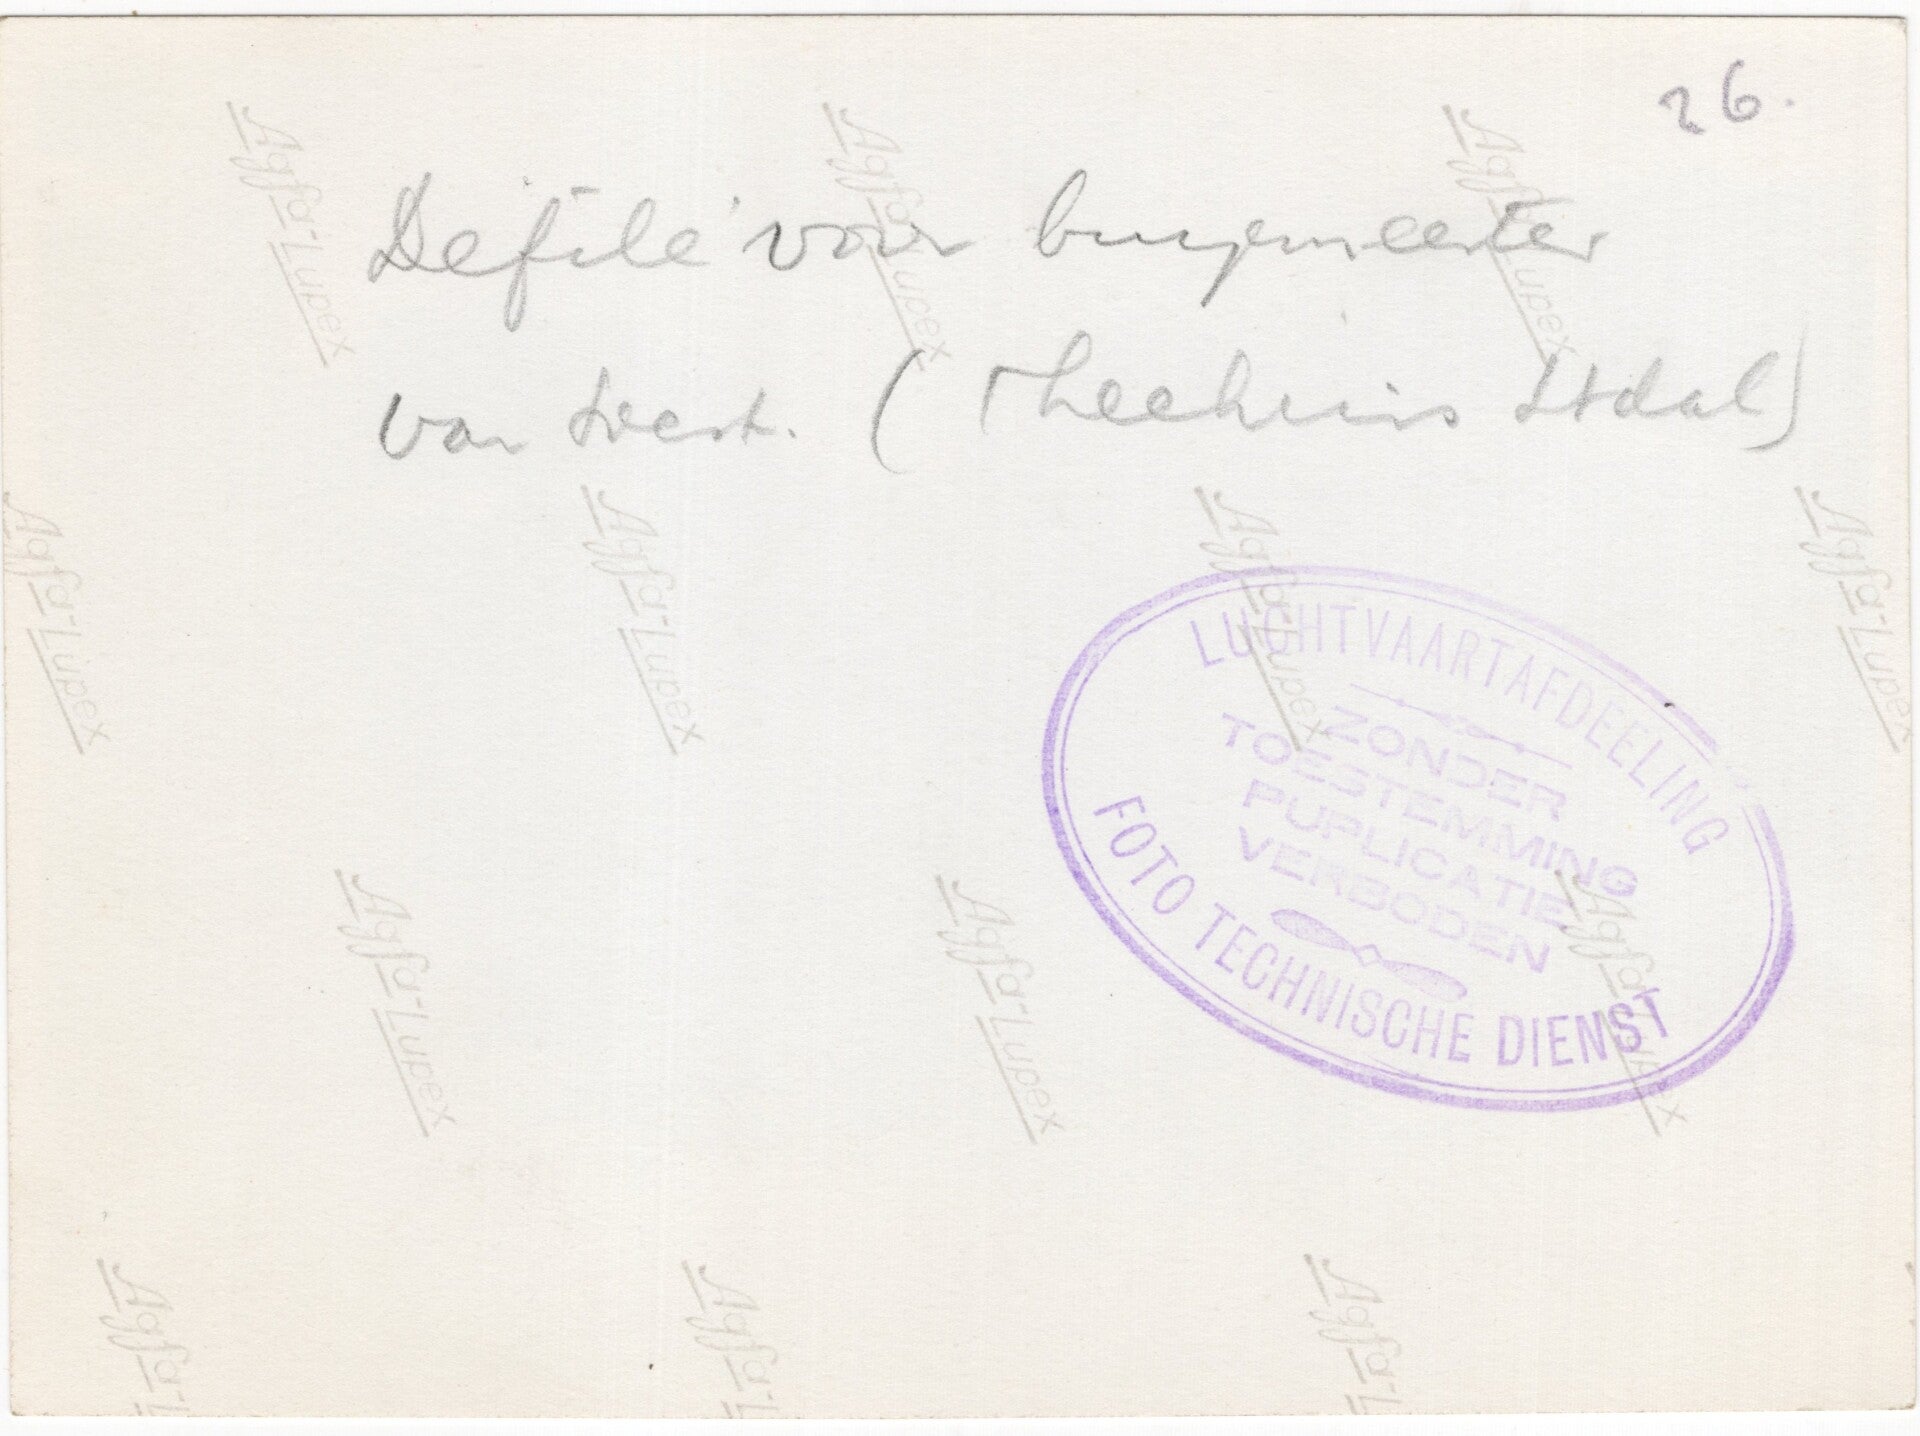 26.
Defilé voor burgemeester
van Soest. (Theehuis Stdal)
Agfa-Lupex
Agfa-Lupex
Agfa-Lupex
Agfa-Lupex
Agfa-Lupex
Agfa-Lupex
Agfa-Lupex
LUCHTVAARTAFDEELING
ZONDER
TOESTEMMING
PUPLICATIE
VERBODEN
FOTO TECHNISCHE DIENST
Agfa-Lupex
Agfa-Lupex
Agfa-Lupex
Agfa-L
Agfa-L
Agfa-L